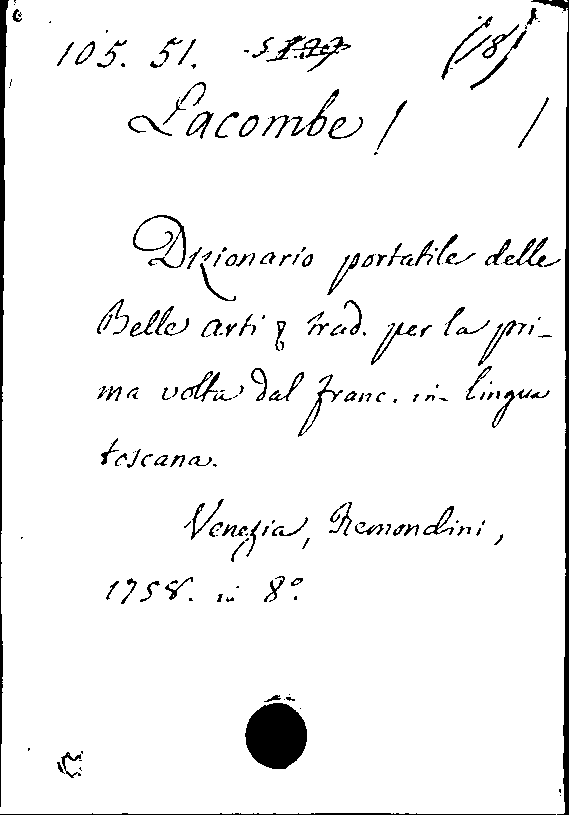 105. 51. (18)
Lacombe / /
Dizionario portatile delle
Belle arti & trad. per la pri-
ma volta dal franc. in lingua
toscana.
Venezia, Remondini,
1758. in 8°.